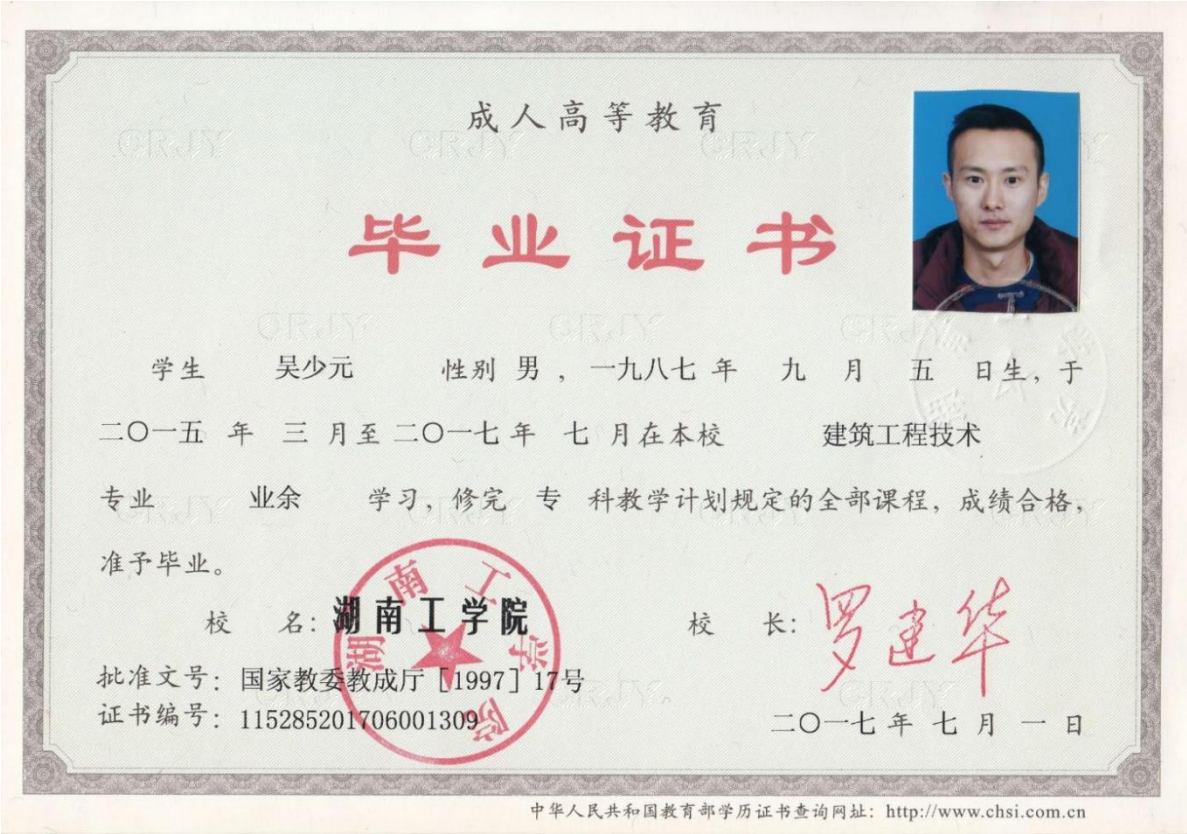 成人高等教育
毕业证书
学生 吴少元 性别 男 ，一九八七 年 九 月 五 日生，于
二〇一五 年 三 月至 二〇一七 年 七 月在本校 建筑工程技术
专业 业余 学习，修完 专 科教学计划规定的全部课程，成绩合格，
准予毕业。
校 名：湖南工学院 校 长：罗建华
批准文号：国家教委教成厅［1997］17号
证书编号：115285201706001309
二〇一七 年 七 月 一 日
湖南工学院
CRJY CRJY CRJY
CRJY CRJY CRJY
中华人民共和国教育部学历证书查询网址：http://www.chsi.com.cn